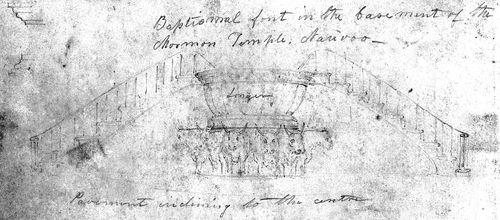 Baptismal font in the basement of the
Mormon Temple, Nauvoo—
Longer
Pavement inclining to the centre